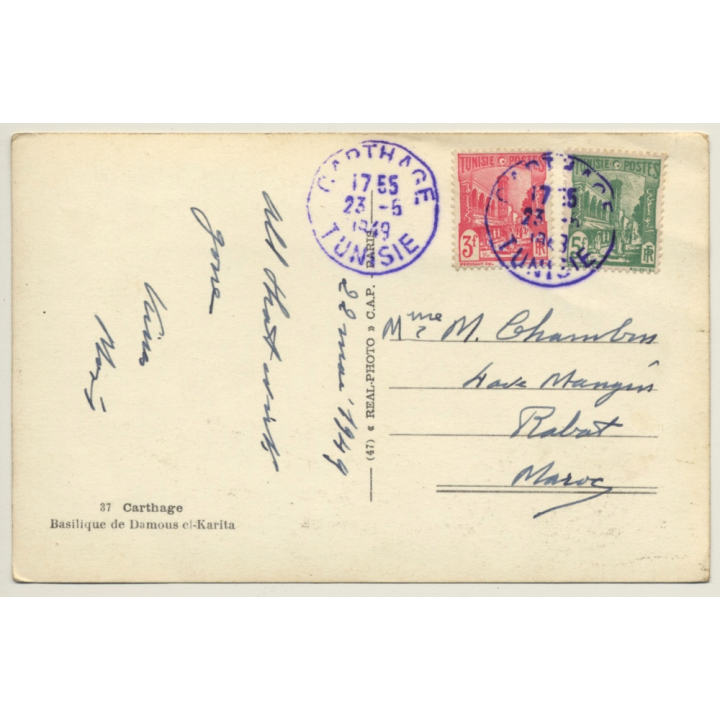 CARTHAGE
17 55
23 -5
1949
TUNISIE
TUNISIE POSTES
3f
RF
TUNISIE POSTES
5f
RF
CARTHAGE
17 55
23 -5
1949
TUNISIE
All that work
gone
22 mai 1949
(47) « REAL-PHOTO » C.A.P. - PARIS
Mme M. Chambers
4 ave Mangin
Rabat
Maroc
37 Carthage
Basilique de Damous el-Karita